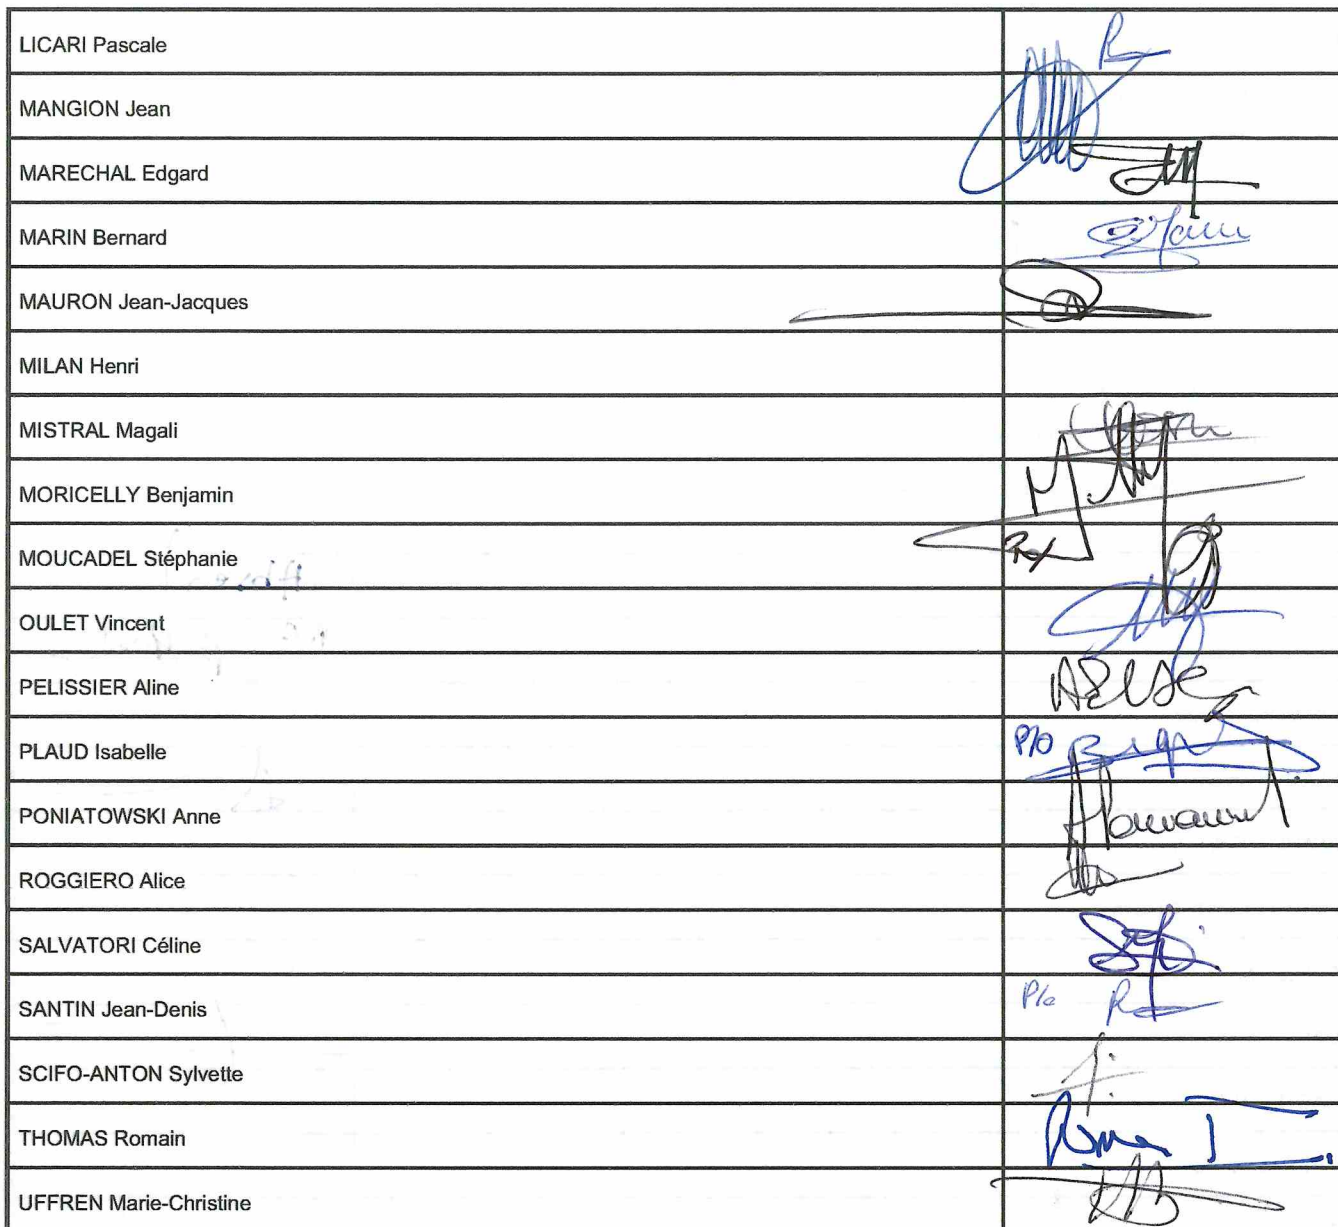 LICARI Pascale
MANGION Jean
MARECHAL Edgard
MARIN Bernard
MAURON Jean-Jacques
MILAN Henri
MISTRAL Magali
MORICELLY Benjamin
MOUCADEL Stéphanie
OULET Vincent
PELISSIER Aline
PLAUD Isabelle P/O
PONIATOWSKI Anne
ROGGIERO Alice
SALVATORI Céline
SANTIN Jean-Denis P/o
SCIFO-ANTON Sylvette
THOMAS Romain
UFFREN Marie-Christine